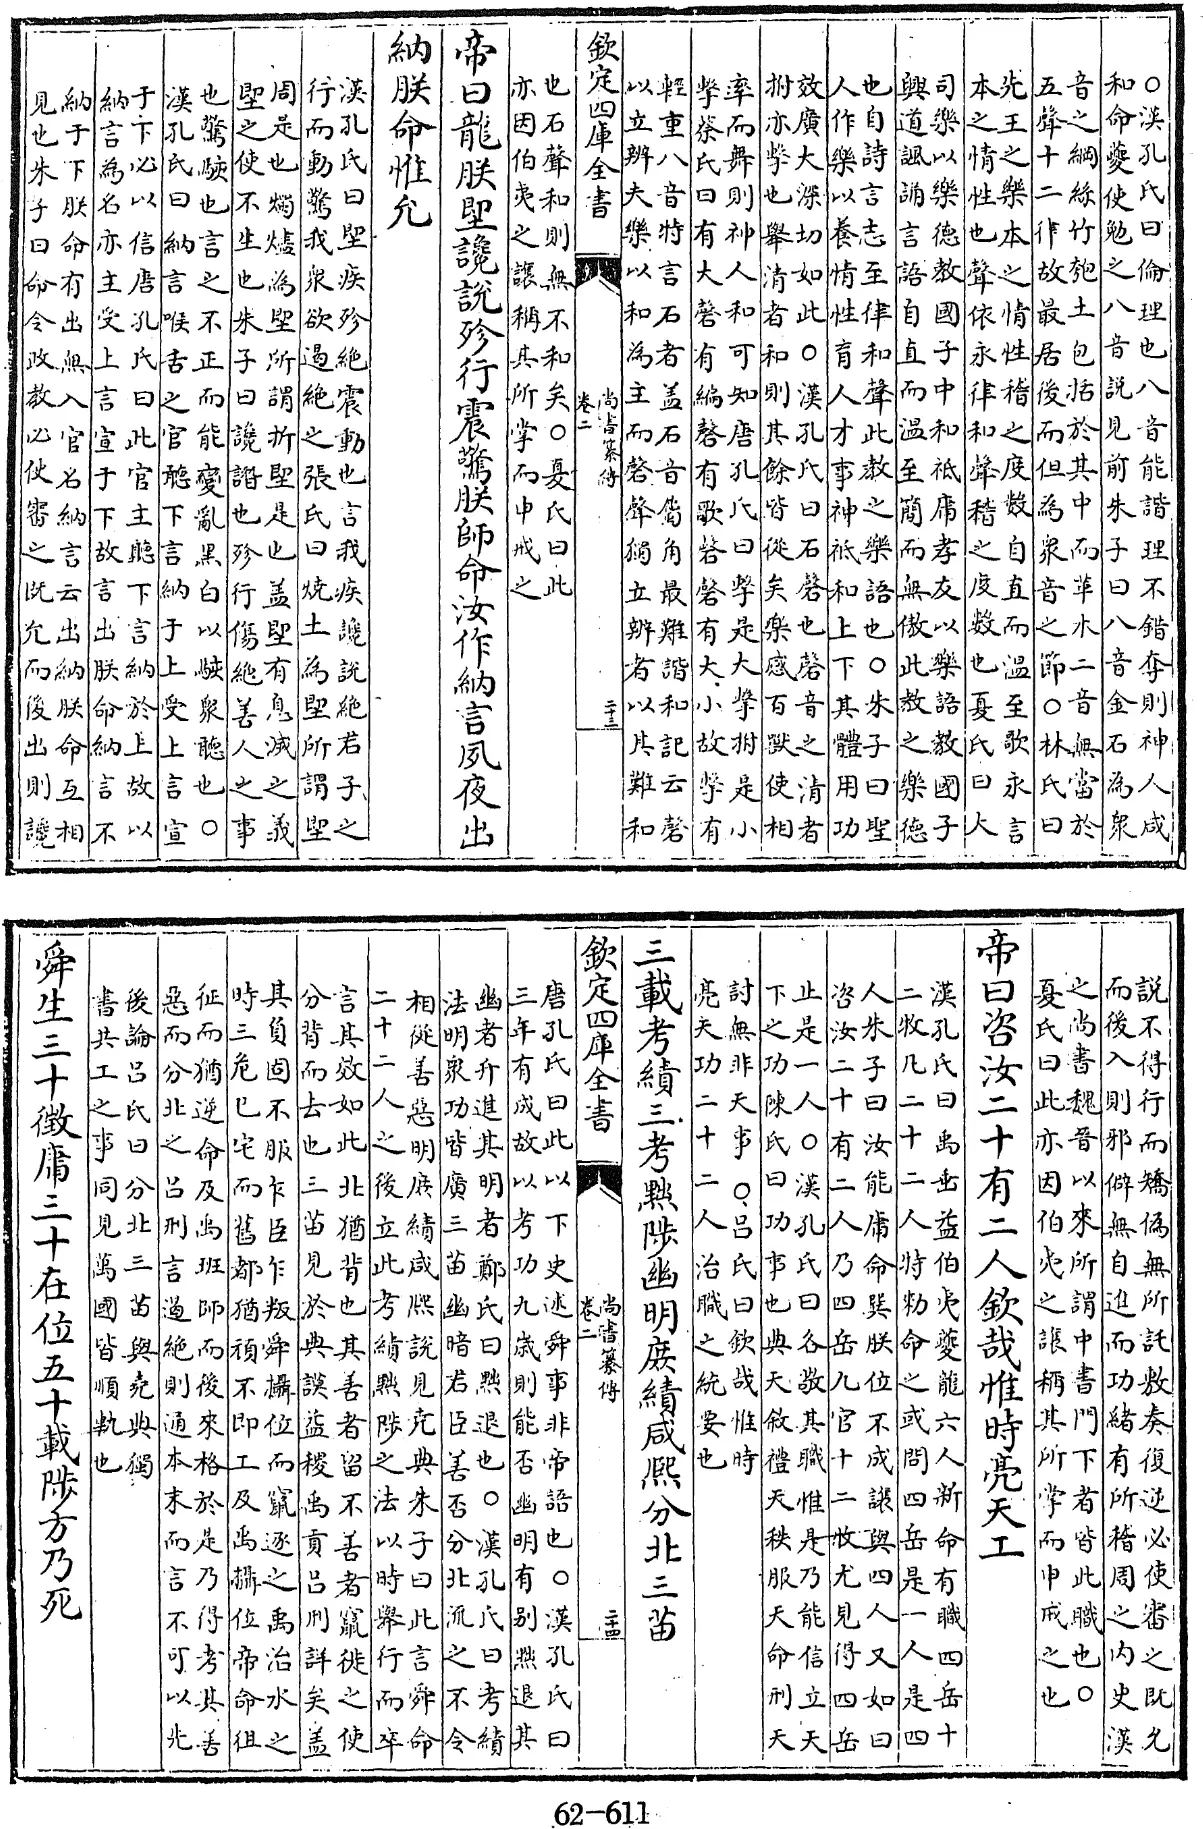 ○漢孔氏曰倫理也八音能諧理不錯奪則神人咸
和命夔使勉之八音説見前朱子曰八音金石為衆
音之綱絲竹匏土包括於其中而革木二音無當於
五聲十二律故最居後而但為衆音之節○林氏曰
先王之樂本之情性稽之度數自直而温至歌永言
本之情性也聲依永律和聲稽之度數也夏氏曰大
司樂以樂德教國子中和祗庸孝友以樂語教國子
興道諷誦言語自直而温至簡而無傲此教之樂德
也自詩言志至律和聲此教之樂語也○朱子曰聖
人作樂以養情性育人才事神祗和上下其體用功
效廣大深切如此○漢孔氏曰石磬也磬音之清者
拊亦擊也舉清者和則其餘皆從矣樂感百獸使相
率而舞則神人和可知唐孔氏曰擊是大擊拊是小
擊蔡氏曰有大磬有編磬有歌磬磬有大小故擊有
輕重八音特言石者盖石音屬角最難諧和記云磬
以立辨夫樂以和為主而磬聲獨立辨者以其難和
欽定四庫全書
尚書纂傳
卷二
二十三
也石聲和則無不和矣○夏氏曰此
亦因伯夷之讓稱其所掌而申戒之
帝曰龍朕堲讒説殄行震驚朕師命汝作納言夙夜出
納朕命惟允
漢孔氏曰堲疾殄絶震動也言我疾讒説絶君子之
行而動驚我衆欲遏絶之張氏曰燒土為堲所謂堲
周是也燭燼為堲所謂折堲是也盖堲有息滅之義
堲之使不生也朱子曰讒譖也殄行傷絶善人之事
也驚駭也言之不正而能變亂黑白以駭衆聽也○
漢孔氏曰納言喉舌之官聽下言納于上受上言宣
于下必以信唐孔氏曰此官主聽下言納於上故以
納言為名亦主受上言宣于下故言出朕命納言不
納于下朕命有出無入官名納言云出納朕命互相
見也朱子曰命令政教必使審之既允而後出則讒
説不得行而矯偽無所託敷奏復逆必使審之既允
而後入則邪僻無自進而功緒有所稽周之内史漢
之尚書魏晉以來所謂中書門下者皆此職也○
夏氏曰此亦因伯夷之讓稱其所掌而申戒之也
帝曰咨汝二十有二人欽哉惟時亮天工
漢孔氏曰禹垂益伯夷夔龍六人新命有職四岳十
二牧凡二十二人特勑命之或問四岳是一人是四
人朱子曰汝能庸命巽朕位不成讓與四人又如曰
咨汝二十有二人乃四岳九官十二牧尤見得四岳
止是一人○漢孔氏曰各敬其職惟是乃能信立天
下之功陳氏曰功事也典天敘禮天秩服天命刑天
討無非天事○吕氏曰欽哉惟時
亮天功二十二人治職之統要也
三載考績三考黜陟幽明庶績咸熙分北三苗
欽定四庫全書
尚書纂傳
卷二
二十四
唐孔氏曰此以下史述舜事非帝語也○漢孔氏曰
三年有成故以考功九歳則能否幽明有别黜退其
幽者升進其明者鄭氏曰黜退也○漢孔氏曰考績
法明衆功皆廣三苗幽暗君臣善否分北流之不令
相從善惡明庶績咸熙説見堯典朱子曰此言舜命
二十二人之後立此考績黜陟之法以時舉行而卒
言其效如此北猶背也其善者留不善者竄徙之使
分背而去也三苗見於典謨益稷禹貢吕刑詳矣盖
其負固不服乍臣乍叛舜攝位而竄逐之禹治水之
時三危已宅而舊都猶頑不即工及禹攝位帝命徂
征而猶逆命及禹班師而後來格於是乃得考其善
惡而分北之吕刑言遏絶則通本末而言不可以先
後論吕氏曰分北三苗與堯典獨
書共工之事同見萬國皆順軌也
舜生三十徵庸三十在位五十載陟方乃死
62-611